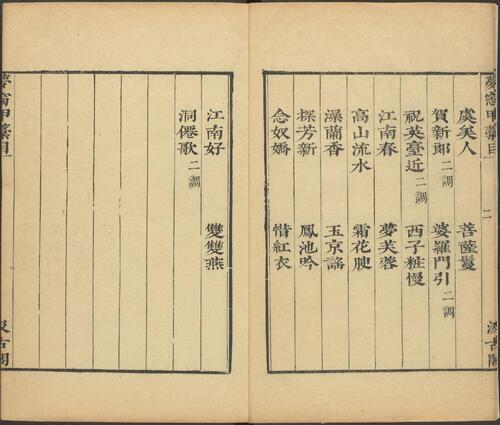 夢窗甲藁目
二
汲古閣
虞美人　菩薩鬘
賀新郎二調　婆羅門引二調
祝英臺近二調　西子粧慢
江南春　夢芙蓉
高山流水　霜花腴
澡蘭香　玉京謠
探芳新　鳳池吟
念奴嬌　惜紅衣
江南好　雙雙燕
洞僊歌二調
夢窗甲藁目
汲古閣